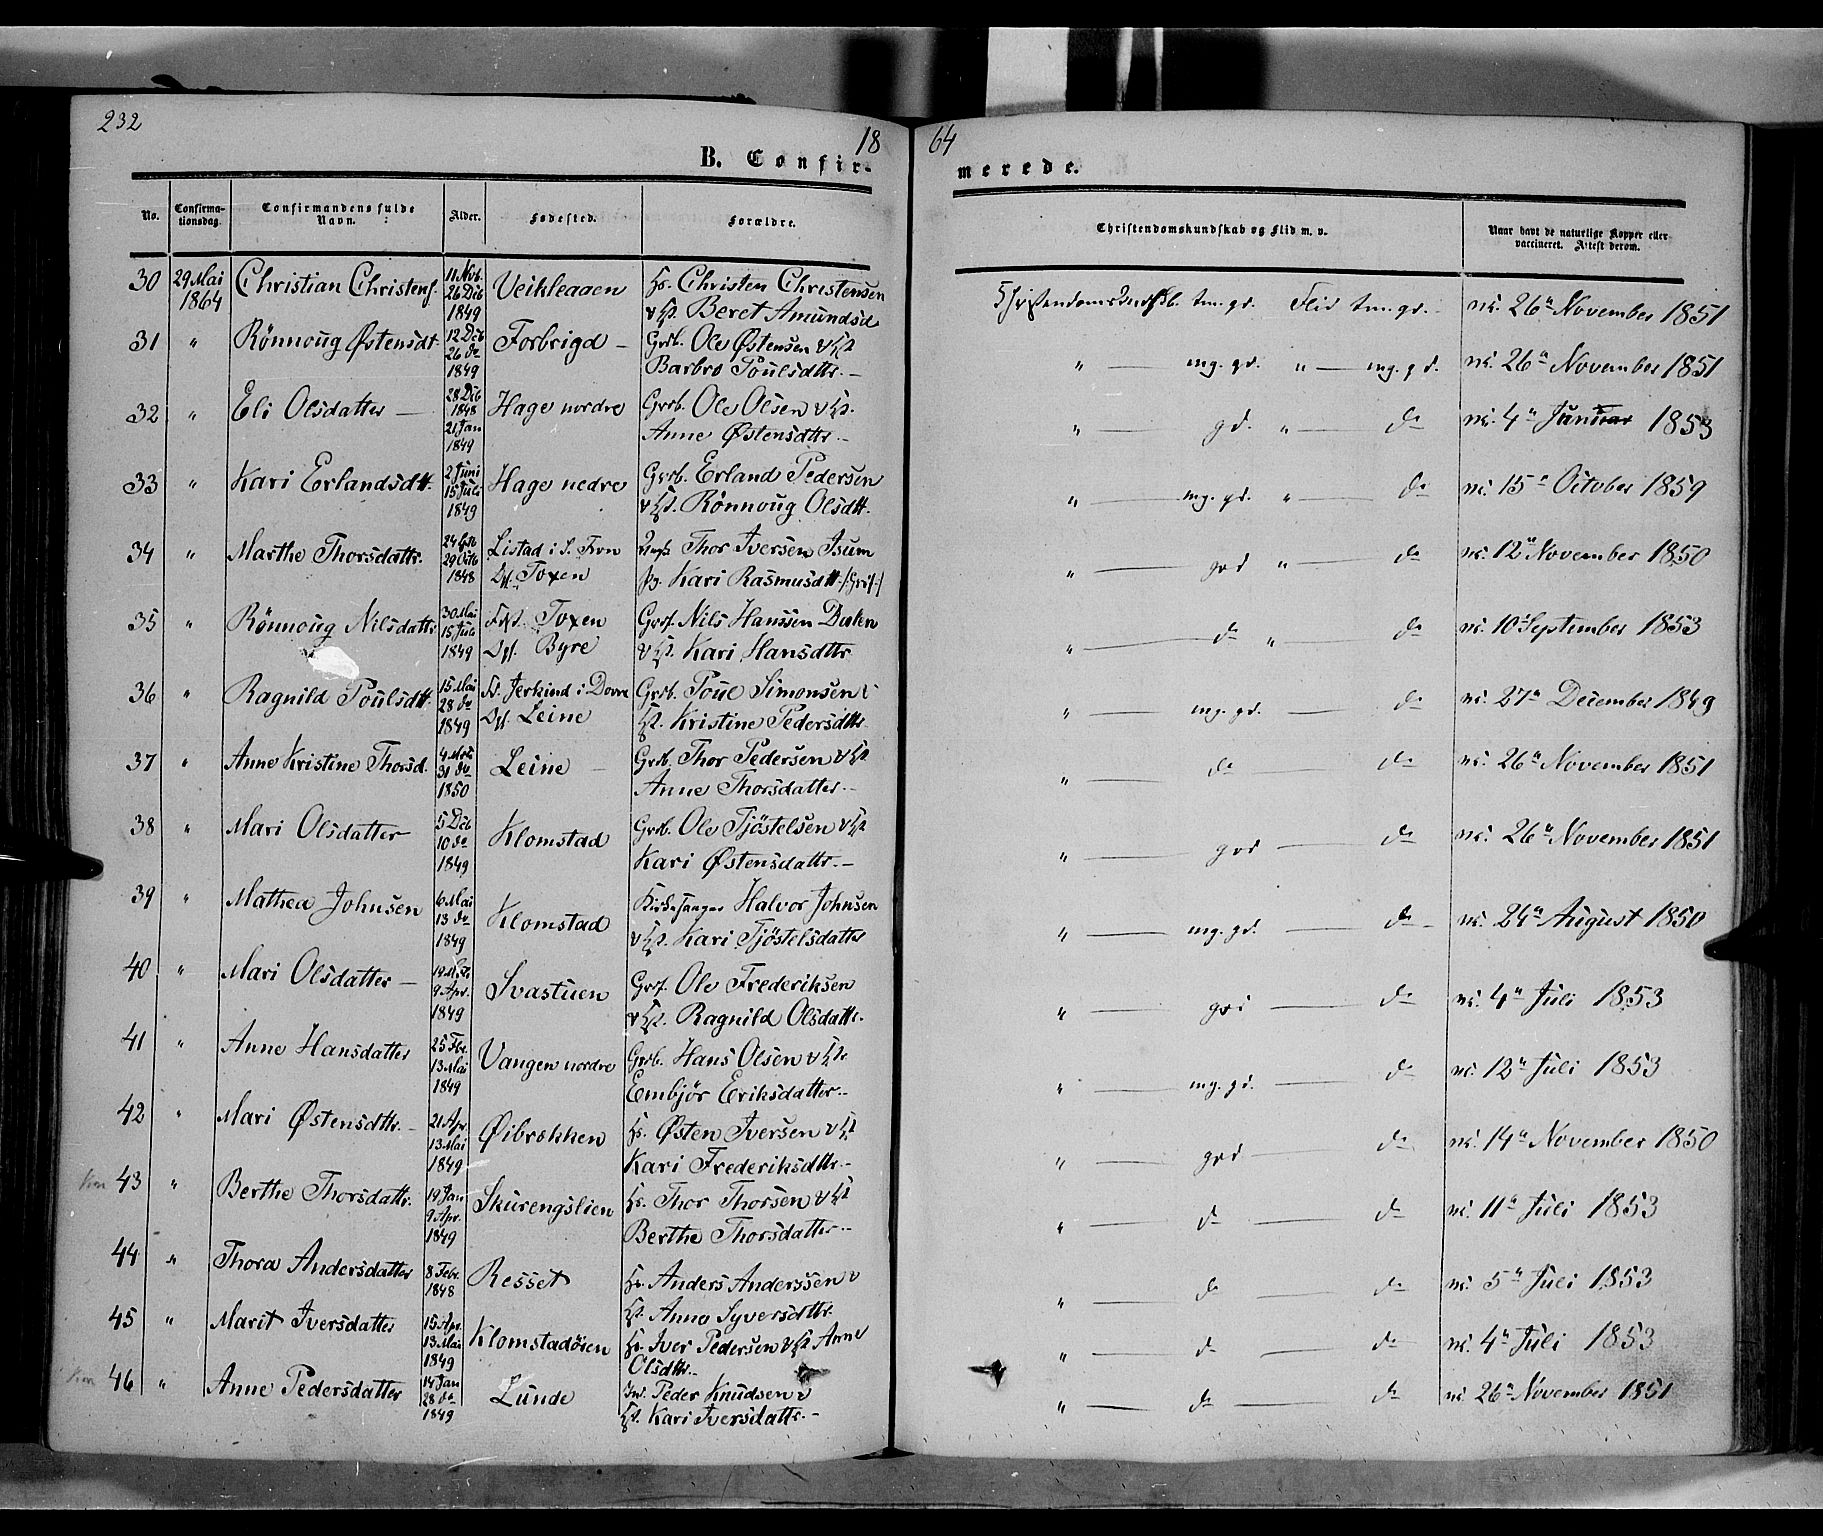 232
18
64
B. Confir-
merede.
No.
Confirma-
tionsdag.
Confirmandens fulde
Navn.
Alder.
Fødested.
Forældre.
Christendomskundskab og Flid m. v.
Naar havt de naturlige Kopper eller
vaccineret. Attest derom.
30 29 Mai 1864 Christian Christens. 11 Nov. 26 Deb 1849 Veikleaaen Hs. Christen Christensen v Hst. Beret Amundsd Christendomskundskb. tm. gd. Flid tm. gd. vc. 26de November 1851
31 " Rönnoug Østensdt. 12 Deb 26 do 1849 Forbrigd Grdb. Ole Østensen v Hst Barbro Poulsdttr. " mg. gd. " mg. gd. vc. 26de November 1851
32 " Eli Olsdatter 28 Deb 1848 21 Jan 1849 Hage nordre Grdb. Ole Olsen v Hst. Anne Østensdttr. " gd. " do vc. 4de Januar 1853
33 " Kari Erlandsdtt. 2 Juni 15 Juli 1849 Hage nedre Grdb. Erland Pedersen v Hst. Rönnoug Olsdtt. " mg. gd. " do vc. 15de October 1859
34 " Marthe Thorsdattr. 29 Octb 1848 Listad i S. Fron Opf. Toxen Thor Iversen Isum Kari Rasmusdtt. " god " do vc. 12te November 1850
35 " Rönnoug Nilsdattr 30 Mai 15 Juli 1849 Fdst. Toxen Opf. Byre Nils Hanssen v Hst. Kari Hansdttr " do " do vc. 10de September 1853
36 " Ragnild Poulsdtt. 15 Mai 28 do 1849 Jerkind i Dovre Opf. Leine Grdb. Poul Simonsen v Hst. Kristine Pedersdttr. " mg. gd. do vc. 27de December 1849
37 " Anne Kristine Thorsd. 31 do 1850 Leine Grdb. Thor Pedersen v Hst Anne Thorsdatter. " do do vc. 26de November 1851
38 " Mari Olsdatter 5 Deb 10 do 1849 Klomstad Grdb. Ole Tjöstelsen v Hst Kari Østensdattr. " god do vc. 26de November 1851
39 " Mathea Johnsen 6 Mai 13 do 1849 Klomstad Kirkesanger Halvor Johnsen v Hst. Kari Tjöstelsdatter " mg. gd. do vc. 24de August 1850
40 " Mari Olsdatter 9 Apr. 1849 Svastuen Ole Frederiksen v Hst. Ragnild Olsdattr. " god do vc. 4de Juli 1853
41 " Anne Hansdatter 25 Fbr. 13 Mai 1849 Vangen nordre Grdb. Hans Olsen v Hst. Embjör Eriksdatter. " mg. gd. do vc. 12te Juli 1853
42 " Mari Østensdttr. 21 Apr. 13 Mai 1849 Øibrekken Hs. Østen Iversen v Hst Kari Frederiksdttr. " god do vc. 14de November 1850
43 " Berthe Thorsdattr. 19 Jan 9 Apr. 1849 Skurengslien Hs. Thor Thorsen v Hst Berthe Thorsdatter. " do do vc. 11te Juli 1853
44 " Thora Andersdatter 8 Febr. 1848 Resset Hs. Anders Anderssen v Hst. Anne Syversdttr. " do do vc. 5te Juli 1853
45 " Marit Iversdatter 15 Apr. 13 Mai 1849 Klomstadöien Hs. Iver Pedersen v Hst Anne Olsdttr. " do do vc. 4de Juli 1853
46 " Anne Pedersdatter 14 Jan 28 do 1849 Lunde Ind. Peder Knudsen v Hst. Kari Iversdattr. " do do vc. 26de November 1851